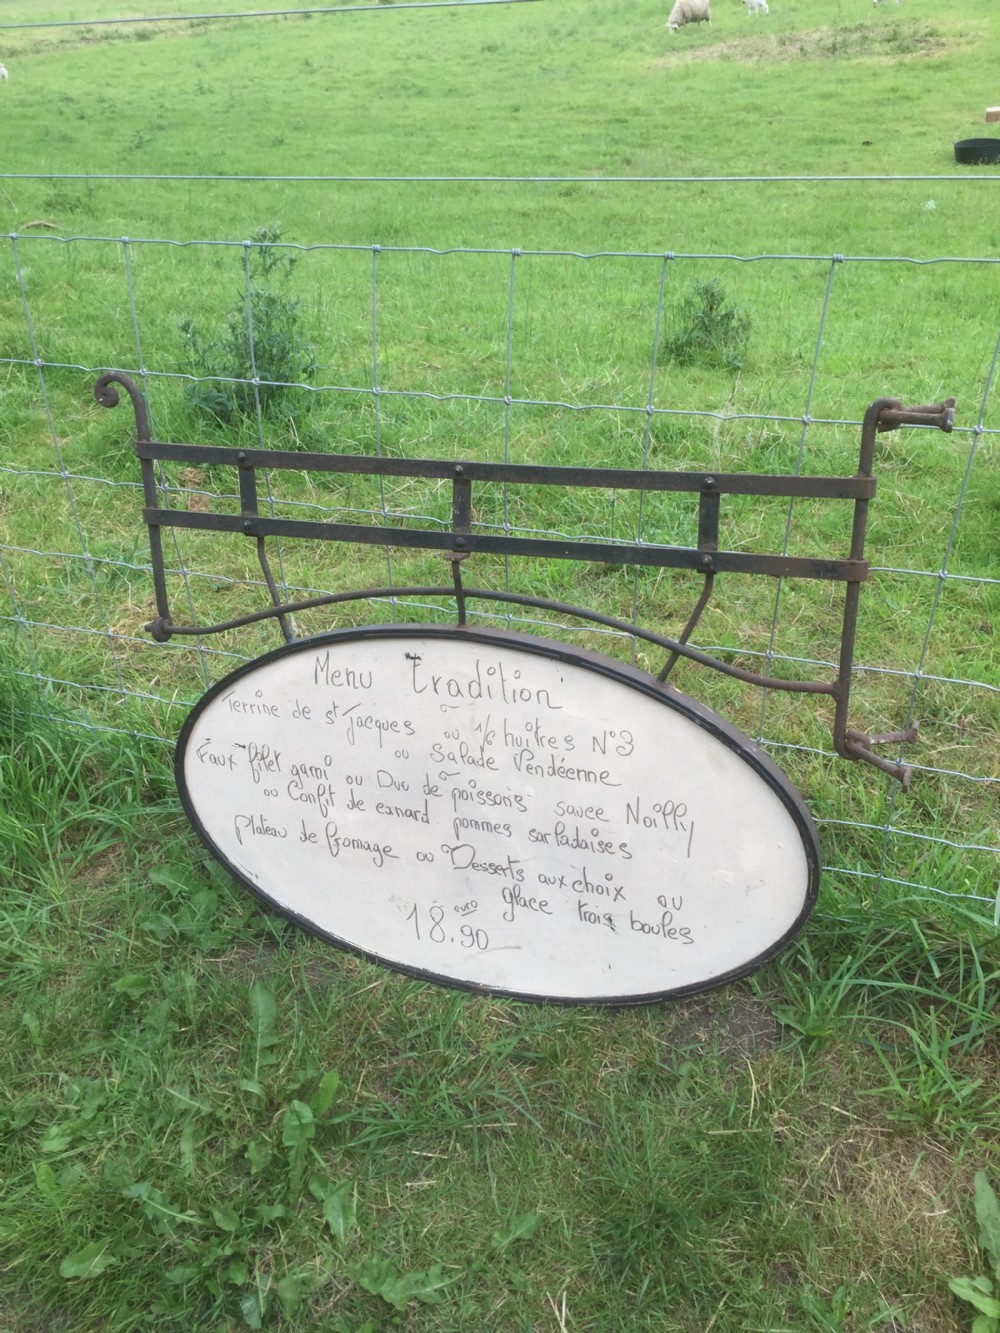 Menu tradition
Terrine de st Jacques ou 1/6 huîtres N°3
ou Salade Vendéenne
Faux filet garni ou Duo de poissons sauce Noilly
ou Confit de canard pommes sarladaises
plateau de fromage ou Desserts aux choix ou
glace trois boules
18.90 euro